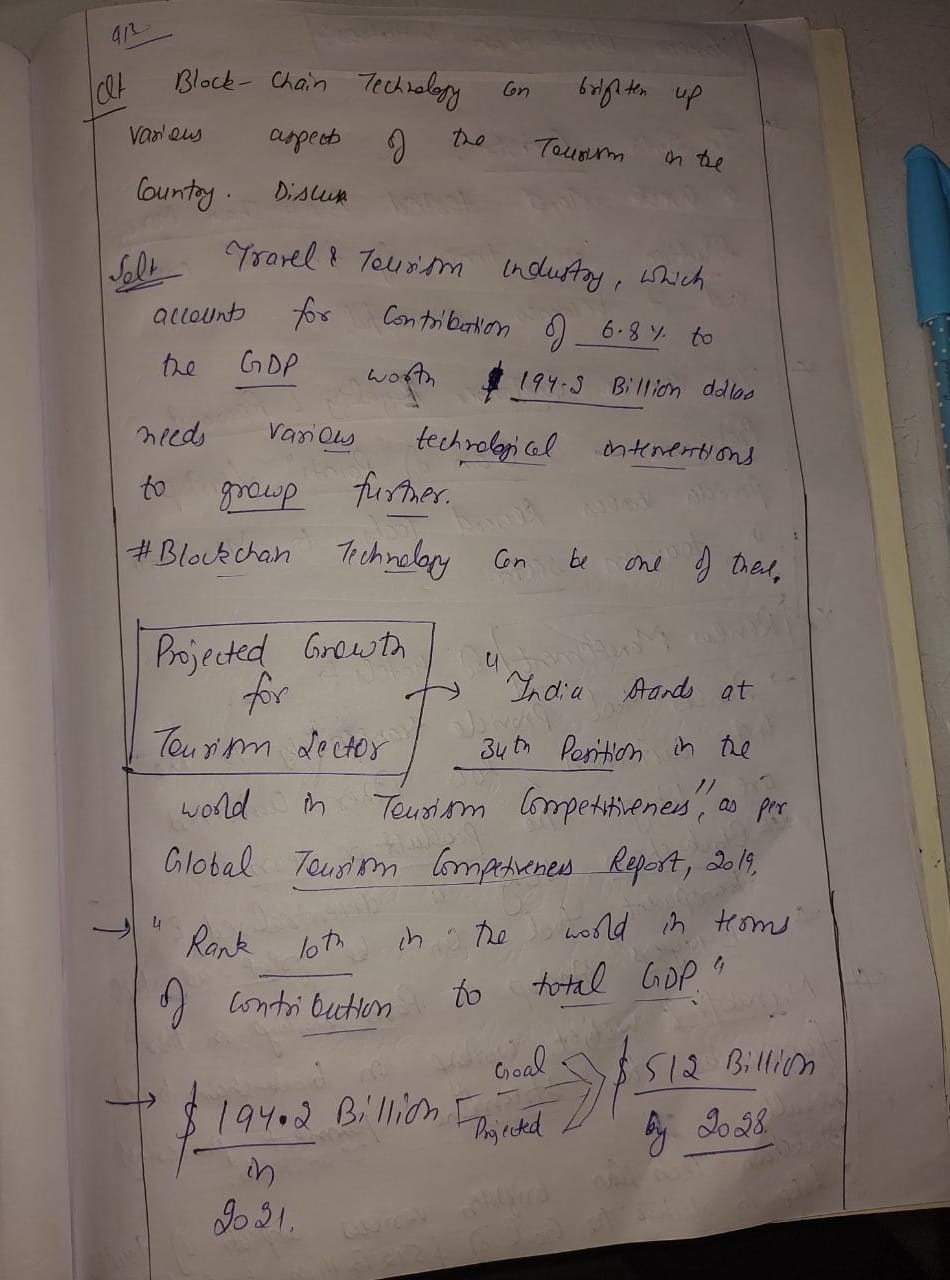 Q1 Block-Chain Technology can brighten up
various aspects of the Tourism in the
Country. Discuss
Sol: Travel & Tourism industry, which
accounts for Contribution of 6.8% to
the GDP worth $ 194.3 Billion dollars
needs various technological interventions
to growp further.
# Blockchain Technology can be one of these.
Projected Growth
for
Tourism Sector
→ "India stands at
34th Position in the
world in Tourism Competitiveness", as per
Global Tourism Competiveness Report, 2019.
→ "Rank 10th in the world in terms
of contribution to total GDP."
→ $ 194.2 Billion Goal Projected $ 512 Billion
in by 2028.
2021.